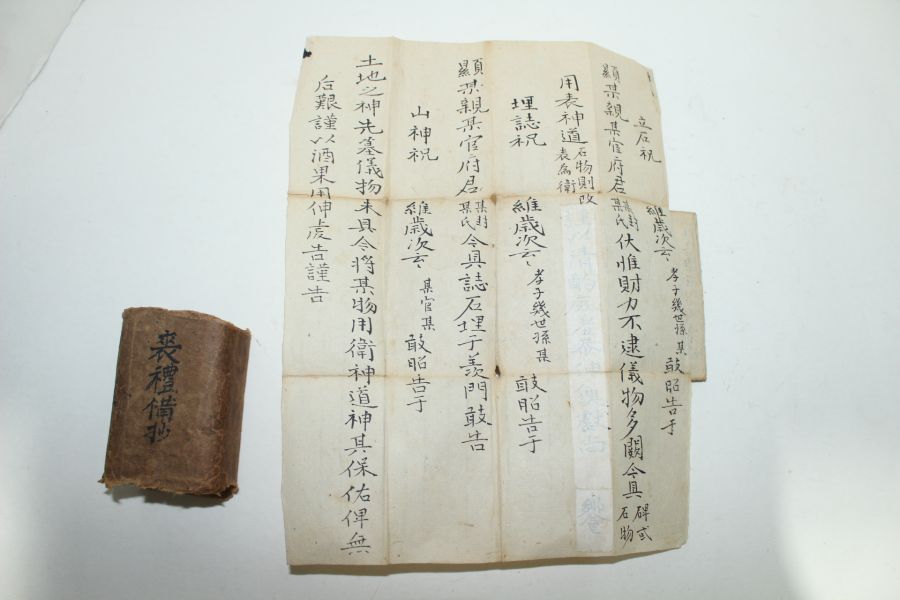 立石祝 維歲次云々 孝子幾世孫某 敢昭告于
顯某親某官府君 某封某氏 伏惟財力不逮儀物多闕今具 碑或石物
用表神道 石物則改表為衛
埋誌祝 維歲次云々 孝子幾世孫某 敢昭告于
顯某親某官府君 某封某氏 今具誌石埋于羨門敢告
山神祝 維歲次云々 某官某 敢昭告于
土地之神先墓儀物未具今將某物用衛神道神其保佑俾無
后艱謹以酒果用伸虔告謹告
喪禮備抄